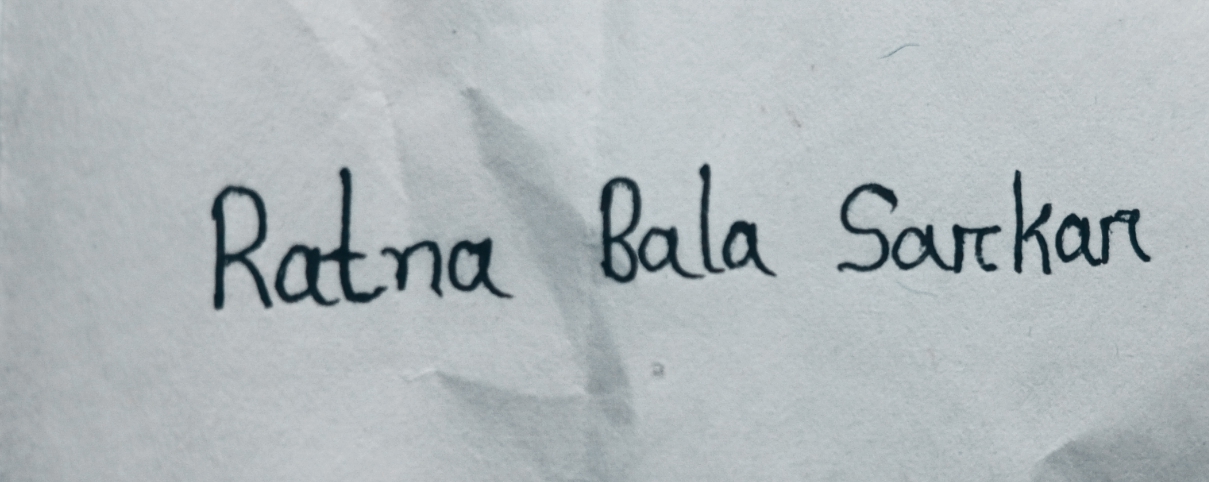 Ratna Bala Sarkar